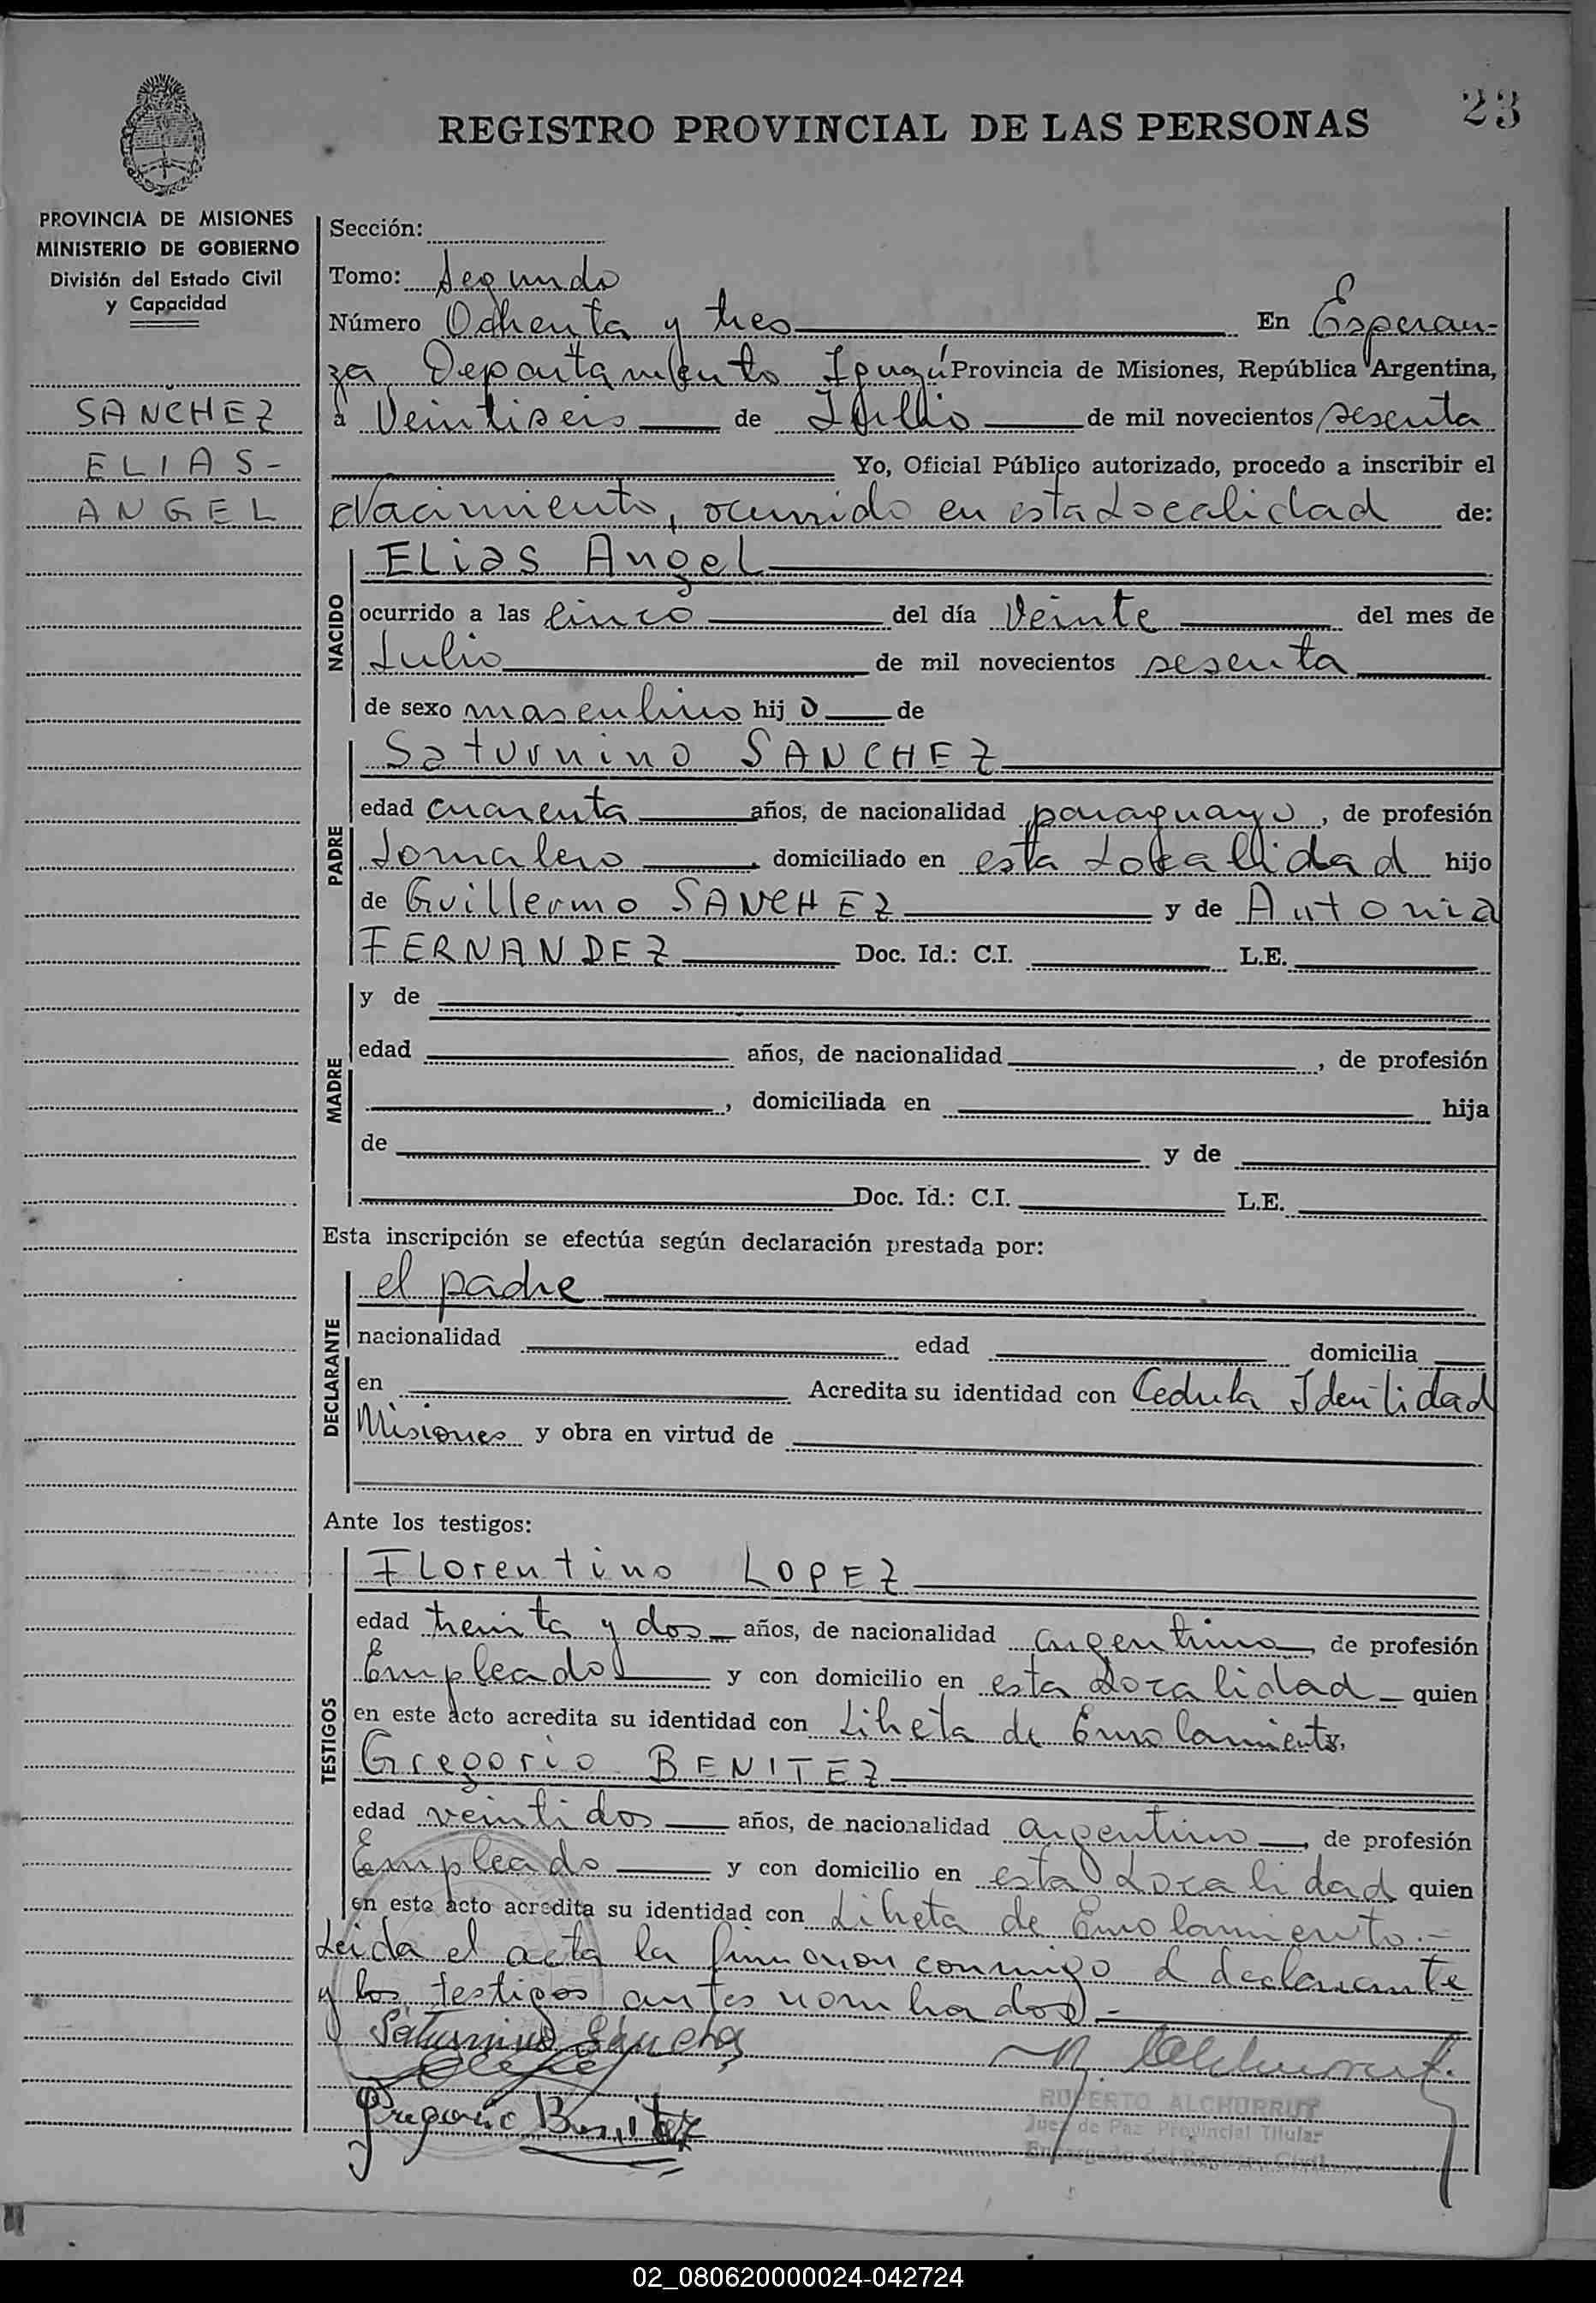 23
REGISTRO PROVINCIAL DE LAS PERSONAS
PROVINCIA DE MISIONES
MINISTERIO DE GOBIERNO
División del Estado Civil
y Capacidad
SANCHEZ
ELIAS-
ANGEL
Sección:
Tomo: Segundo
Número Ochenta y tres En Esperan-
za Departamento Iguazú Provincia de Misiones, República Argentina,
a Veintiseis de Julio de mil novecientos sesenta
Yo, Oficial Público autorizado, procedo a inscribir el
Nacimiento, ocurrido en esta Localidad de:
NACIDO
Elias Angel
ocurrido a las Cinco del día Veinte del mes de
Julio de mil novecientos sesenta
de sexo masculino hij o de
PADRE
Saturnino SANCHEZ
edad cuarenta años, de nacionalidad paraguayo, de profesión
Jornalero, domiciliado en esta Localidad hijo
de Guillermo SANCHEZ y de Antonia
FERNANDEZ Doc. Id.: C.I. L.E.
MADRE
y de
edad años, de nacionalidad , de profesión
, domiciliada en hija
de y de
Doc. Id.: C.I. L.E.
Esta inscripción se efectúa según declaración prestada por:
DECLARANTE
el padre
nacionalidad edad domicilia
en Acredita su identidad con Cedula Identidad
Misiones y obra en virtud de
Ante los testigos:
TESTIGOS
Florentino LOPEZ
edad treinta y dos años, de nacionalidad argentino, de profesión
Empleado y con domicilio en esta Localidad quien
en este acto acredita su identidad con Libreta de Enrolamiento.
Gregorio BENITEZ
edad veintidos años, de nacionalidad argentino, de profesión
Empleado y con domicilio en esta Localidad quien
en este acto acredita su identidad con Libreta de Enrolamiento.-
Leida el acta la firmaron conmigo el declarante
y los testigos antes nombrados.-
Saturnino Sanchez
Gregorio Benitez
RUPERTO ALCHURRUT
Juez de Paz Provincial Titular
Encargado del Registro Civil
02_080620000024-042724